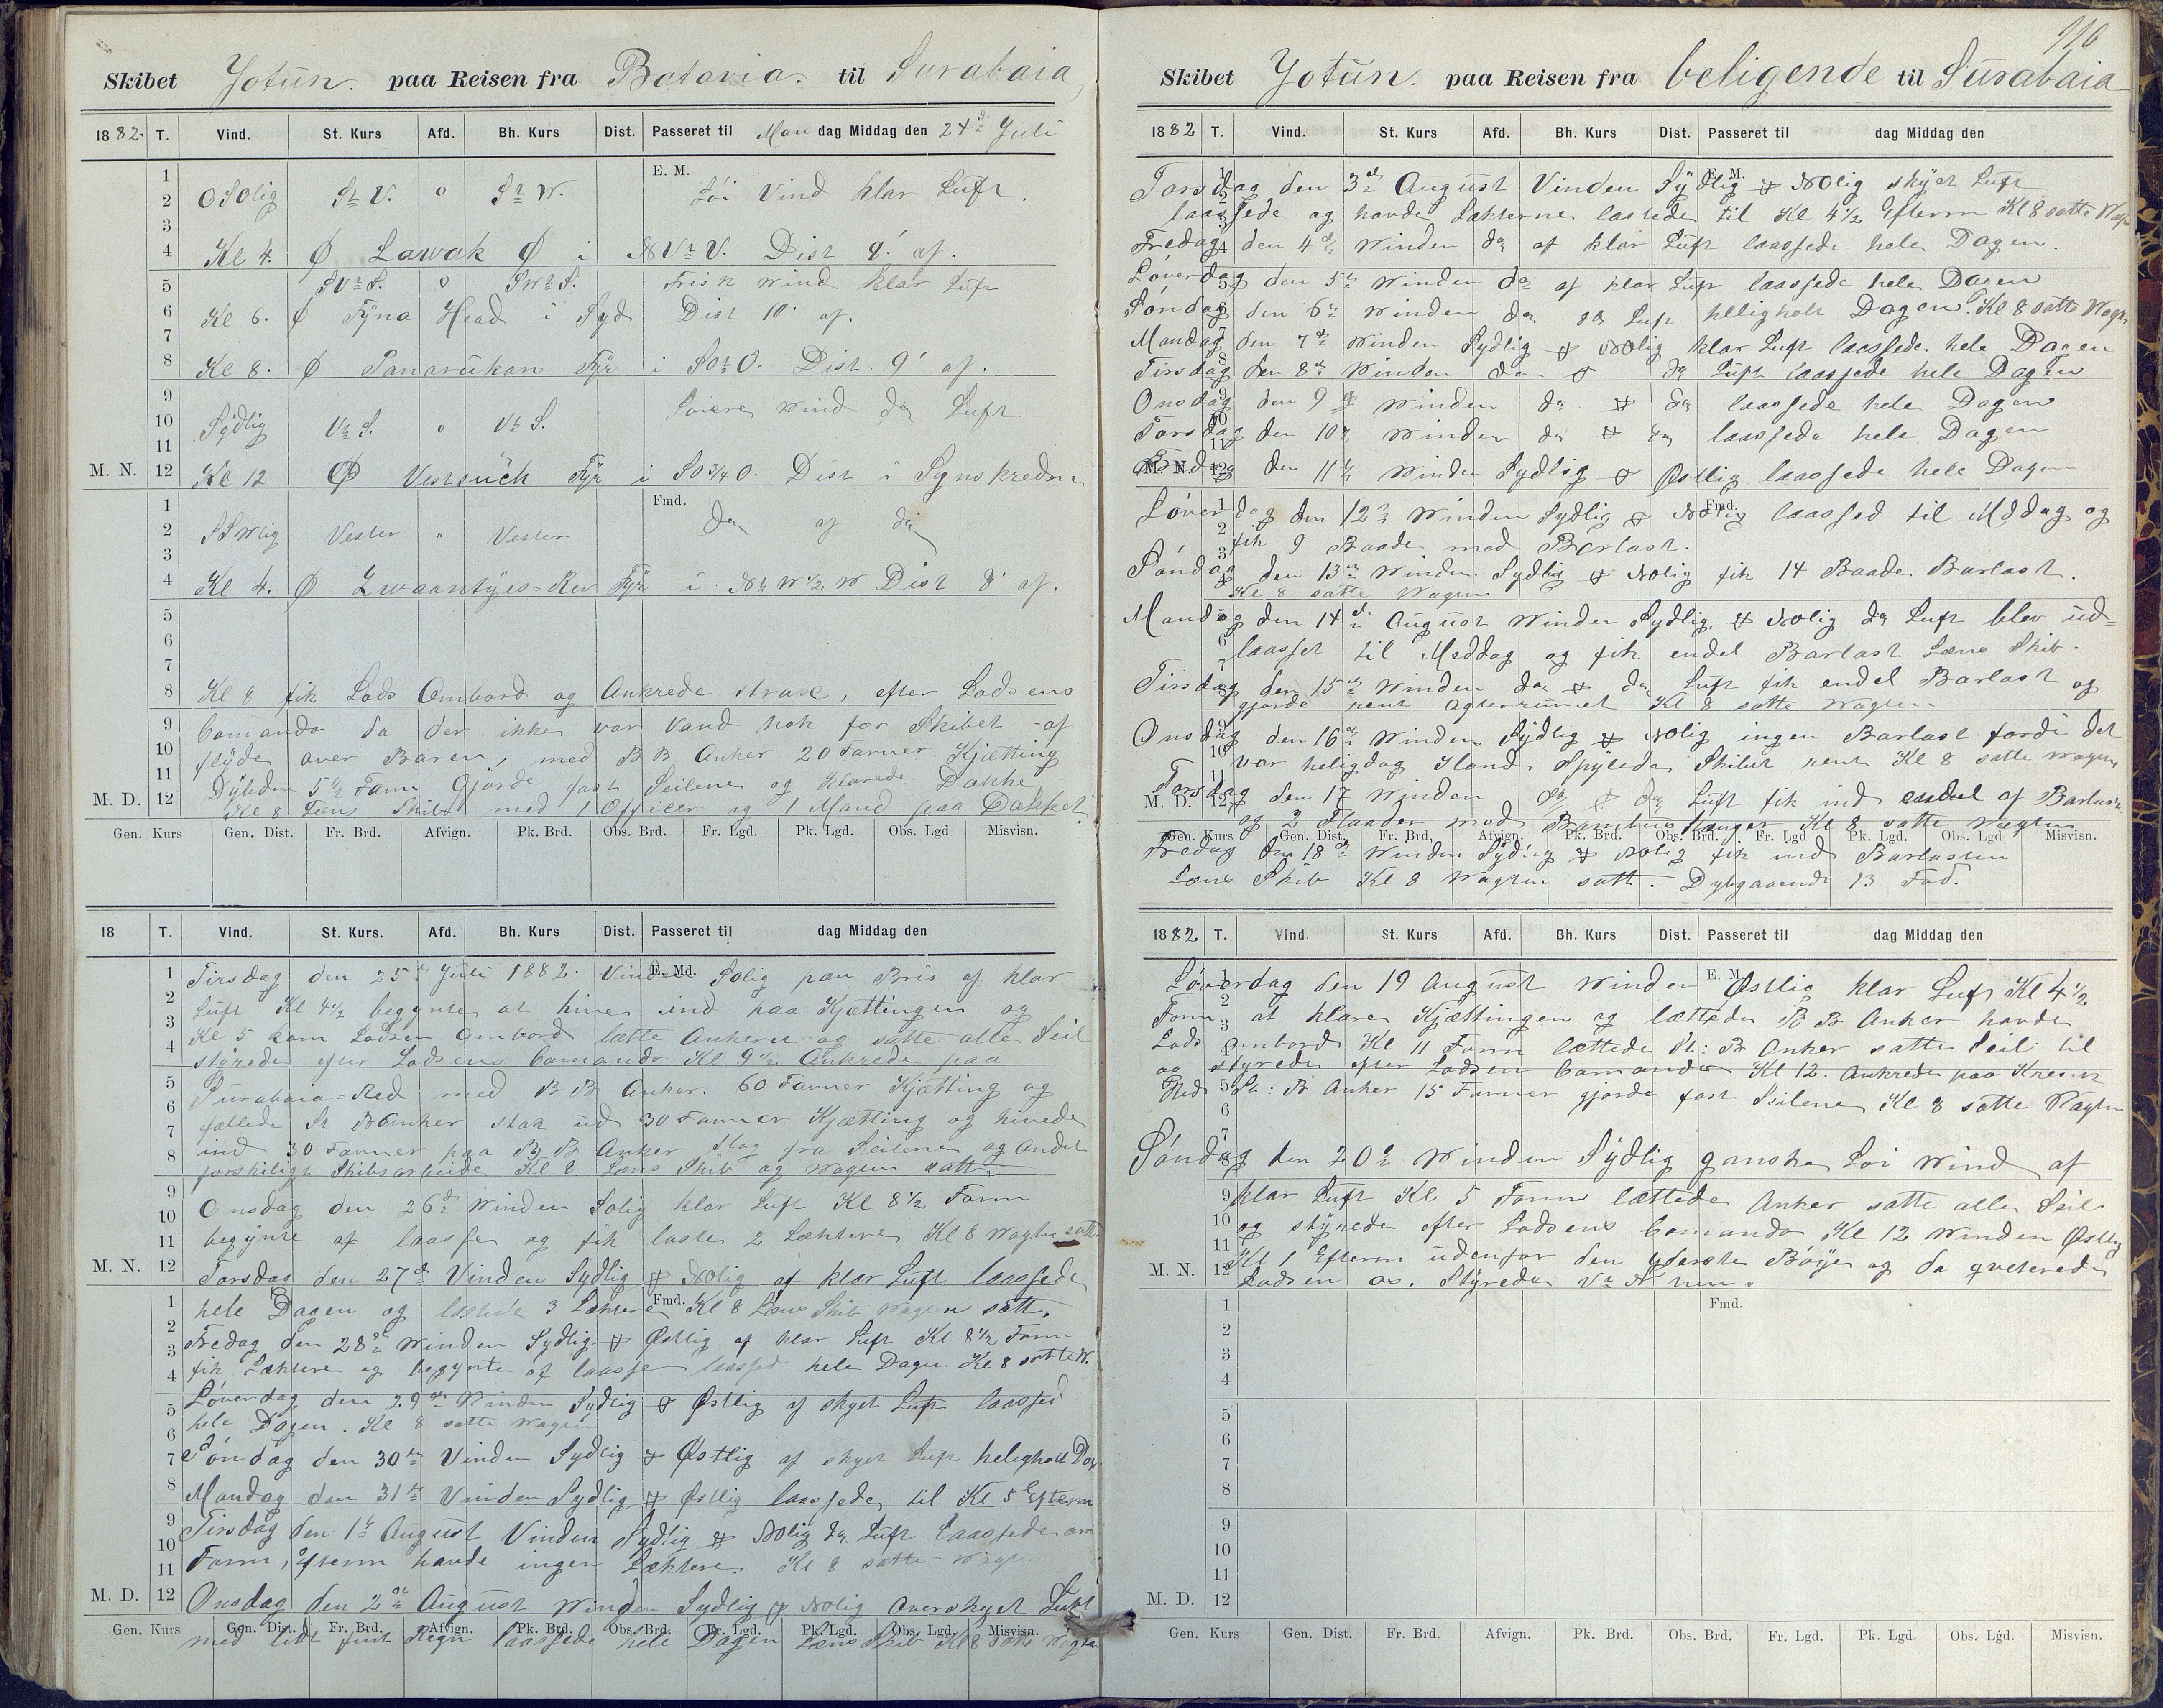 Skibet Jotun. paa Reisen fra Batavia. til Surabaia
1882. T. Vind. St. Kurs Afd. Bh. Kurs Dist. Passeret til Mandag Middag den 24de Juli
E. M.
1
2 OSOlig StV. o StW. Löi Vind klar Luft.
3
4 Kl 4. Ø Lawak Ø i NVtV. Dist 8' af.
5 SVtS. o SWtS. Frisk Wind klar Luft
6 Kl 6. Ø Tÿna Head i Syd Dist 10' af.
7
8 Kl 8. Ø Panarukan Fÿr i SOtO. Dist 9' af.
9 Löiere Wind do Luft
10 Sÿdlig VtS. o. VtS.
11
M. N. 12 Kl 12 Ø Fÿr i SO3/4O. Dist i Synskredsen
Fmd.
1
2 SSWlig Vester " Vester do af do
3
4 Kl 4. Ø Zwaantÿes=Rev Fÿr i NtW1/2W Dist 8' af.
5
6
7
8 Kl 8 fik Lods Ombord og Ankrede strax, efter Lodsens
9 Comando da der ikke var Vand nok for Skibet at
10 flÿde over Baren, med B B Anker 20 Favner Kjætting
11 Dÿbden 5 1/2 Favn Gjorde fast Seilene og klarede Dække
M. D. 12 Kl 8 Læns Skib med 1 Officer og 1 Mand paa Dækket
Gen. Kurs Gen. Dist. Fr. Brd. Afvign. Pk. Brd. Obs. Brd. Fr. Lgd. Pk. Lgd. Obs. Lgd. Misvisn.
18 T. Vind. St. Kurs. Afd. Bh. Kurs Dist. Passeret til dag Middag den
E. Md.
1 Tirsdag den 25de Juli 1882. Vinden Solig pæn Bris af klar
2 Luft Kl 4 1/2 begynte at hive ind paa Kjættingen og
3 Kl 5 kom Lodsen Ombord lætte Ankeret og satte alle Seil
4 stÿrede efter Lodsens Comando Kl 9 1/2 Ankrede paa
5 Surabaia=Red med B B Anker. 60 Favner Kjætting og
6 fællede St B Anker stak ud 30 Favner Kjætting og hivede
7 ind 30 Favner paa B B Anker slog fra Seilene og andet
8 forskiligt Skibsarbeide Kl 8 Læns Skib og Wagten satt
9 Onsdag den 26de Winden Solig klar Luft Kl 8 1/2 Form
10
11 begynte at laasse og fik laste 2 Læktere Kl 8 Wagten satt.
M. N. 12 Torsdag den 27de Vinden Sydlig & Nolig af klar Luft laassede
Fmd.
1 hele Dagen og lastede 3 Læktere Kl 8 Læns Skib Wagten satt.
2 Fredag den 28de Winden Sydlig & Østlig af klar Luft Kl 8 1/2 Form
3
4 fik Læktere og begynte at laasse laassed hele Dagen Kl 8 satte W.
5 Löverdag den 29de Winden Sydlig & Østlig af skyet Luft laassed
6 hele Dagen. Kl 8 satte Wagten
7 Söndag den 30te Vinden Sydlig & Østlig af skyet Luft heligholt Dag
8 Mandag den 31te Vinden Sydlig & Østlig laassede til Kl 5 Efterm
9 Tirsdag den 1te August Vinden Sydlig & Nolig do Luft Laassede om
10
11 Form, Efterm havde ingen Læktere. Kl 8 satte Wagt.
M. D. 12 Onsdag den 2de August Winden Sydlig & Nolig Overskyet Luft
Gen. Kurs Gen. Dist. Fr. Brd. Afvign. Pk. Brd. Obs. Brd. Fr. Lgd. Pk. Lgd. Obs. Lgd. Misvisn.
med lidt fint Regn laassede hele Dagen Læns Skib Kl 8 satt Wagten
110
Skibet Jotun. paa Reisen fra beligende til Surabaia
1882 T. Vind. St. Kurs Afd. Bh. Kurs Dist. Passeret til dag Middag den
E. M.
Torsdag den 3de August Vinden Sÿdlig & Nolig skÿet Luft
laassede og havde Lækterne lastede til Kl 4 1/2 Efterm Kl 8 satte Wagt
Fredag den 4de Winden do af klar Luft laassede hele Dagen.
Löverdag den 5te Winden do af klar Luft laassede hele Dagen
Söndag den 6te Winden do do Luft heligholt Dagen. Kl 8 satte Wagt
Mandag den 7de Winden Sydlig & Nolig klar Luft laassede hele Dagen
Tirsdag den 8de Winden do & do Luft laassede hele Dagen
Onsdag den 9de Winden do & do laassede hele Dagen
Torsdag den 10de Winden do & do laassede hele Dagen
M. N. Fredag den 11te Winden Sydlig & Østlig laassede hele Dagen
Fmd.
Löverdag den 12te Winden Sydlig & Nolig laassed til Middag og
fik 9 Baade med Barlast.
Söndag den 13de Winden Sydlig & Nolig fik 14 Baade Barlast.
Kl 8 satte Wagten
Mandag den 14de August Winden Sydlig & Nolig do Luft blev ud=
laasset til Meddag og fik endel Barlast Læns Skib.
Tirsdag den 15de Winden do & do Luft fik endel Barlast og
gjorde rent agterrumet Kl 8 satte Wagten
Onsdag den 16de Winden Sÿdlig & Nolig ingen Barlast fordi det
var heligdag Iland Spÿlede Skibet rent Kl 8 satte Wagten
M. D. Torsdag den 17 Winden do & do Luft fik ind endel af Barlasten
og 2 Flaader med Bambus Stænger Kl 8 satte Wagten
Gen. Kurs Gen. Dist. Fr. Brd. Afvign. Pk. Brd. Obs. Brd. Fr. Lgd Pk. Lgd. Obs. Lgd. Misvisn.
Fredag den 18de Winden Sydlig & Nolig fik ind Barlasten
Læns Skib Kl 8 Wagten satt. Dybgaaende 13 Fod.
1882 T. Vind. St. Kurs Afd. Bh. Kurs Dist. Passeret til dag Middag den
E. M.
Löverdag den 19 August Winden Østlig klar Luft Kl 4 1/2
Form at klare Kjættingen og lættede B B Anker havde
Lods ombord Kl 11 Form lættede St: B Anker satte Seil til
og styrede efter Lodsen Comando Kl 12. Ankrede paa
Red St: B Anker 15 Favner gjorde fast Seilene Kl 8 satte Wagten
Söndag den 20de Winden Sÿdlig ganske Löi Wind af
klar Luft Kl 5 Form lættede Anker satte alle Seil
og stÿrede efter Lodsens Comando Kl 12 Winden Østlig
Kl 1 Efterm udenfor den yderste Böÿe og da qviterede
M. N. 12 Lodsen os. Stÿrede
Fmd.
1
2
3
4
5
6
7
8
9
10
11
M. D. 12
Gen. Kurs Gen. Dist. Fr. Brd. Afvign. Pk. Brd. Obs. Brd. Fr. Lgd. Pk. Lgd. Obs. Lgd. Misvisn.